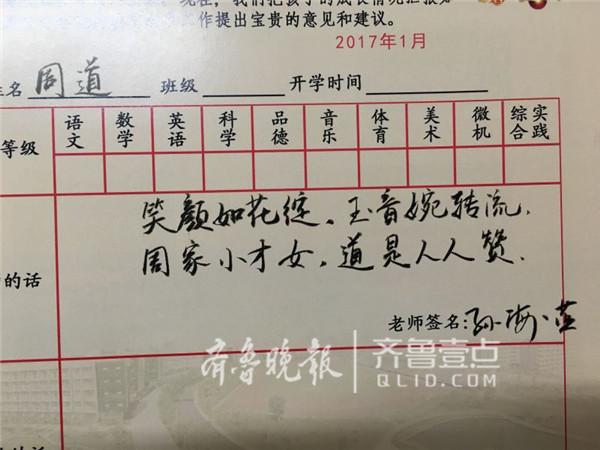 现在，我们把孩子的成长情况汇报如
作提出宝贵的意见和建议。
2017年1月
姓名 周道 班级 开学时间
等级 语文 数学 英语 科学 品德 音乐 体育 美术 微机 综合实践
笑颜如花绽，玉音婉转流，
周家小才女，道是人人赞。
的话
老师签名：孙海燕
齐鲁晚报 齐鲁壹点
QLID.COM
的话